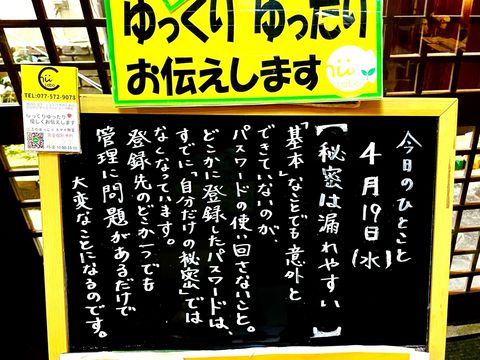 ゆっくり ゆったり
お伝えします
TEL:077-572-9078
ゆっくりゆったり
優しくお伝えします
今日のひとこと
4月19日(水)
【秘密は漏れやすい】
"基本"なことでも意外と
できていないのが、
パスワードの使い回さないこと。
どこかに登録したパスワードは、
すでに「自分だけの秘密」では
なくなっています。
登録先のどこか一つでも
管理に問題があるだけで
大変なことになるのです。